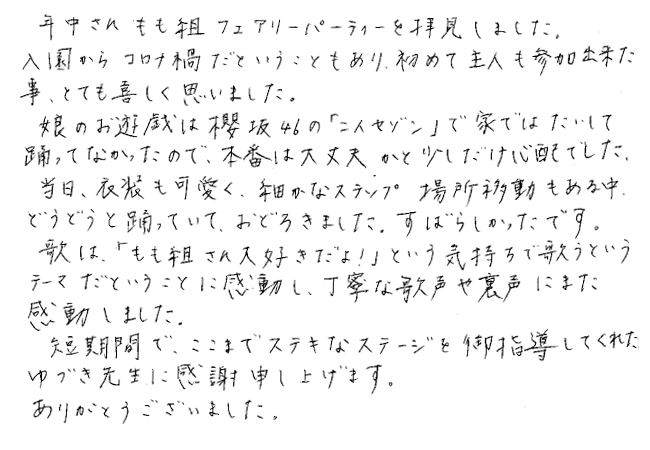 年中さん もも組 フェアリーパーティーを拝見しました。
入園から コロナ禍だということもあり、初めて主人も参加出来た
事、とても喜しく思いました。
娘のお遊戯は櫻坂46の「二人セゾン」で家ではたいして
踊ってなかったので、本番は大丈夫かと少しだけ心配でした。
当日、衣装も可愛く、細かなステップ 場所移動もある中、
どうどうと踊っていて、おどろきました。すばらしかったです。
歌は、「もも組さん大好きだよ!」という気持ちで歌うという
テーマだということに感動し、丁寧な歌声や裏声にまた
感動しました。
短期間で、ここまでステキなステージを御指導してくれた
ゆづき先生に感謝申し上げます。
ありがとうございました。